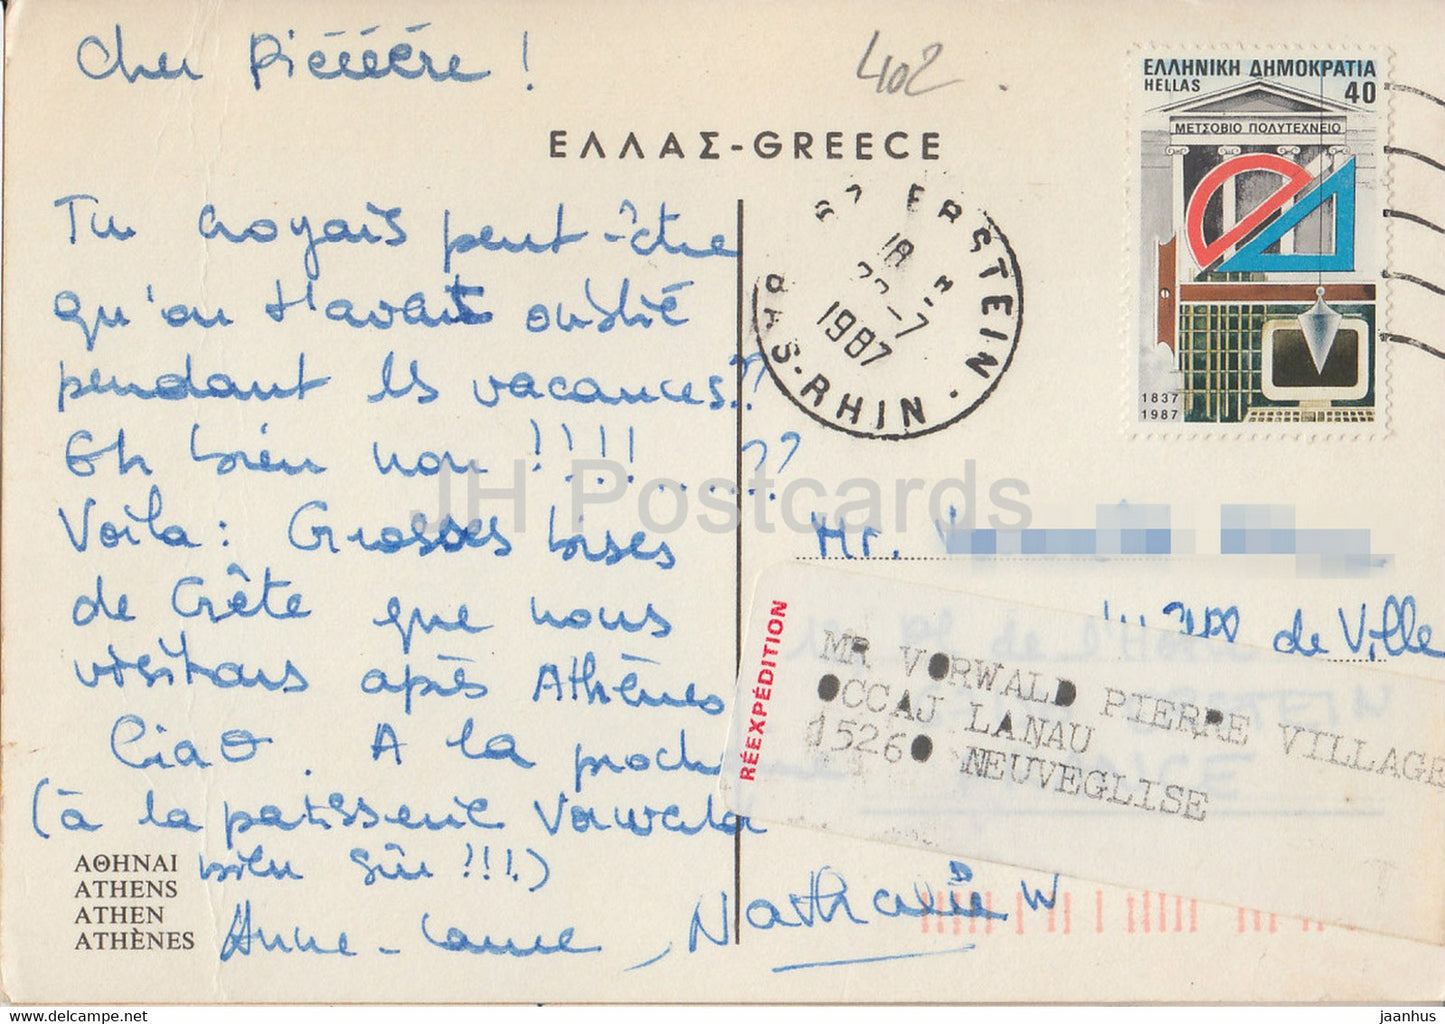 Cher Piéééére !
402
ΕΛΛΑΣ-GREECE
ΕΛΛΗΝΙΚΗ ΔΗΜΟΚΡΑΤΙΑ
HELLAS 40
ΜΕΤΣΟΒΙΟ ΠΟΛΥΤΕΧΝΕΙΟ
1837
1987
ERSTEIN
18
22-7
1987
BAS-RHIN
Tu croyais peut-être
qu'on t'avait oublié
pendant les vacances??
Eh bien non !!!!.....??
Voila: Grosses bises
de Crête que nous
visitons après Athènes
Ciao. A la proch
(à la patisserie Vorwald
bien sûr !!!.)
Anne-Laure, Nathalie W
ΑΘΗΝΑΙ
ATHENS
ATHEN
ATHÈNES
JH Postcards
Mr.
de Ville
RÉEXPÉDITION
MR VORWALD PIERRE VILLAGE
OCCAJ LANAU
15260 NEUVEGLISE
jaanhus — https://www.jaanhus.com